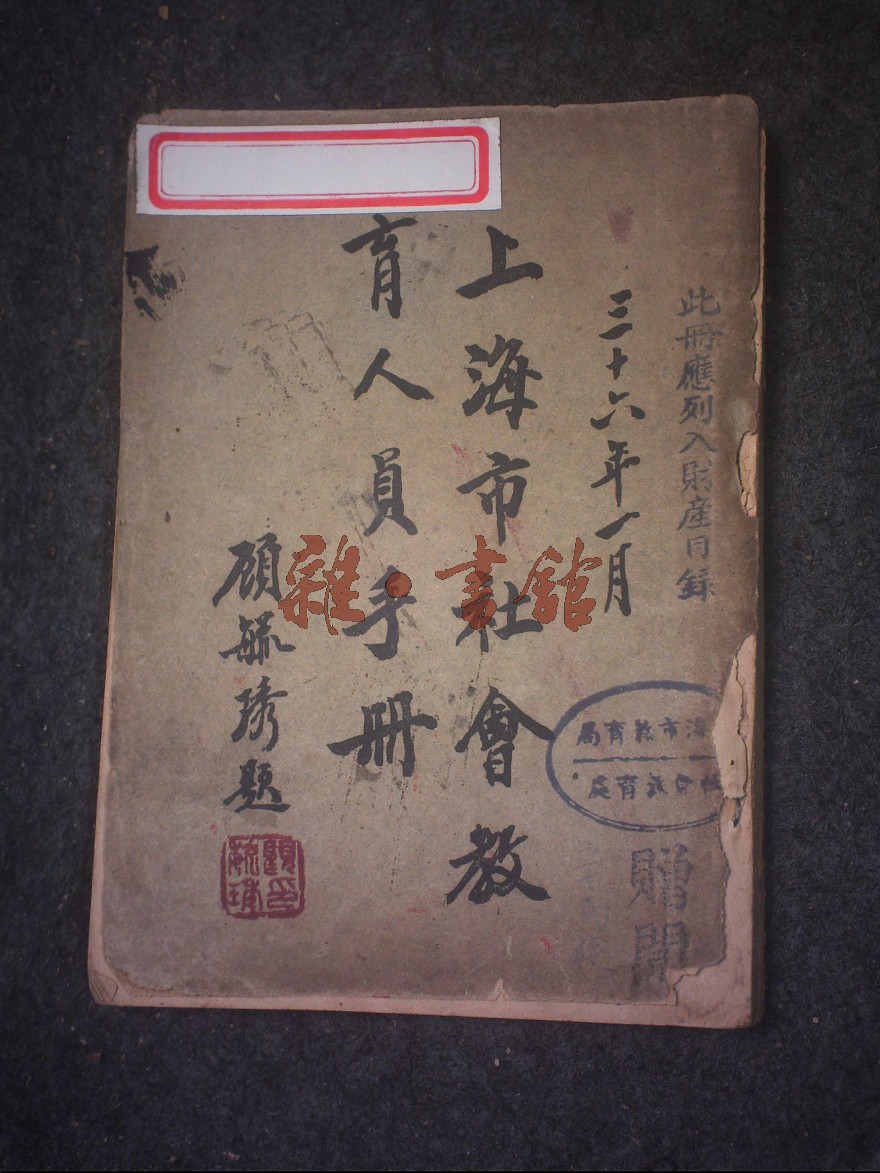 此冊應列入財產目錄
三十六年一月
上海市社會教
育人員手冊
顧毓琇題
顧毓琇印
海市教育局
社會教育處
贈閱
雜·書館